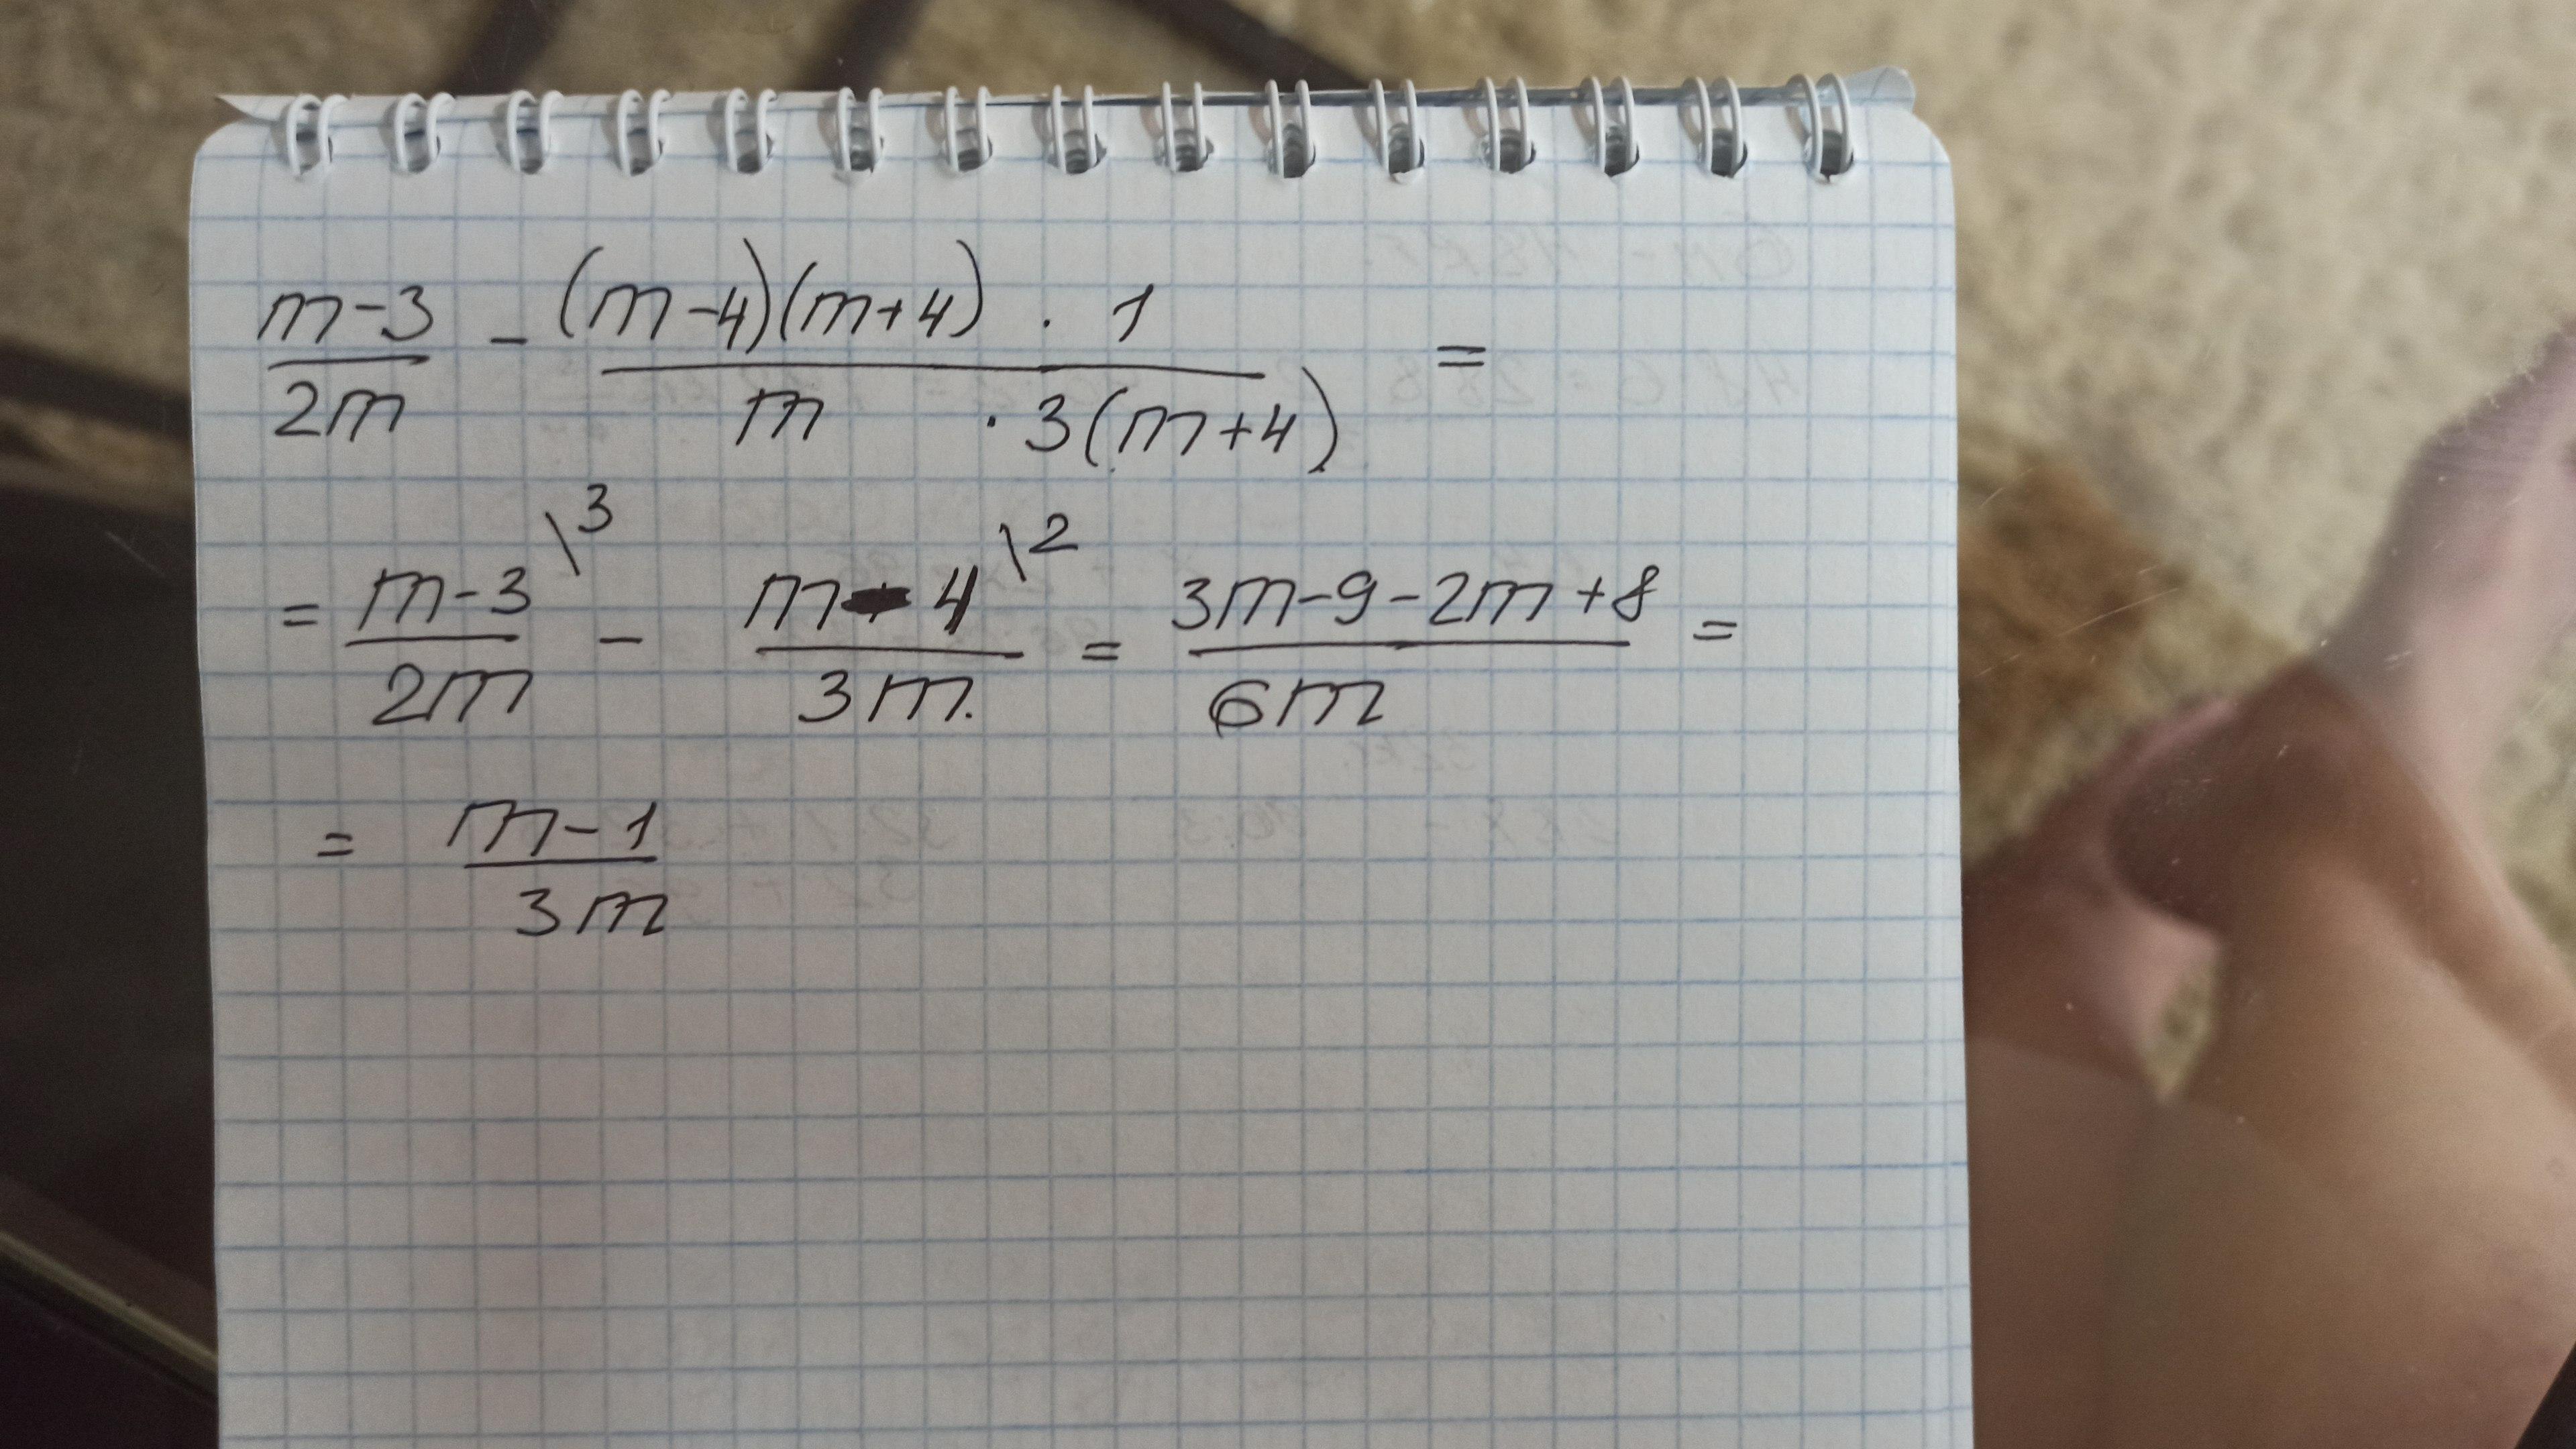 (m-3)/(2m) - ((m-4)(m+4) · 1)/(m · 3(m+4)) =
= (m-3)/(2m) \3 - (m-4)/(3m.) \2 = (3m-9-2m+8)/(6m) =
= (m-1)/(3m)